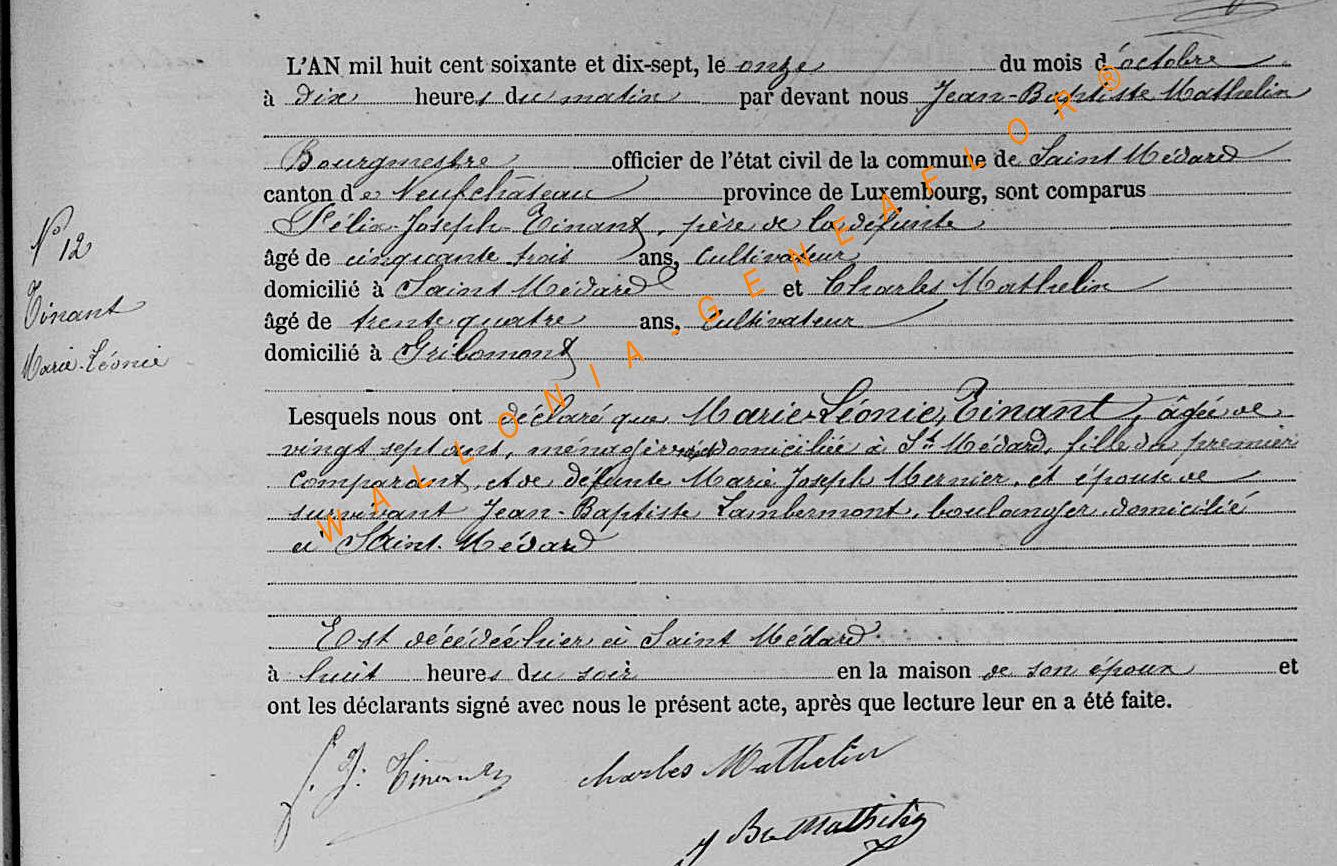 L'AN mil huit cent soixante et dix-sept, le onze du mois d'octobre
à dix heures du matin par devant nous Jean-Baptiste Mathelin
Bourgmestre officier de l'état civil de la commune de Saint Médard
canton de Neufchâteau province de Luxembourg, sont comparus
Félix-Joseph-Tinant, père de la défunte
âgé de cinquante trois ans, Cultivateur
domicilié à Saint Médard et Charles Mathelin
âgé de trente quatre ans, Cultivateur
domicilié à Gribomont
N° 12
Tinant
Marie-Léonie
Lesquels nous ont déclaré que Marie-Léonie, Tinant, âgée de
vingt sept ans, ménagère domiciliée à St Médard, fille du premier
comparant, et de défunte Marie Joseph Mernier, et épouse de
survivant Jean-Baptiste Lambermont, boulanger, domicilié
à Saint-Médard
Est décédée hier à Saint Médard
à huit heures du soir en la maison de son époux et
ont les déclarants signé avec nous le présent acte, après que lecture leur en a été faite.
f. J. Tinant Charles Mathelin
J Bte Mathelin
WALLONIA-GENEAFLOR®